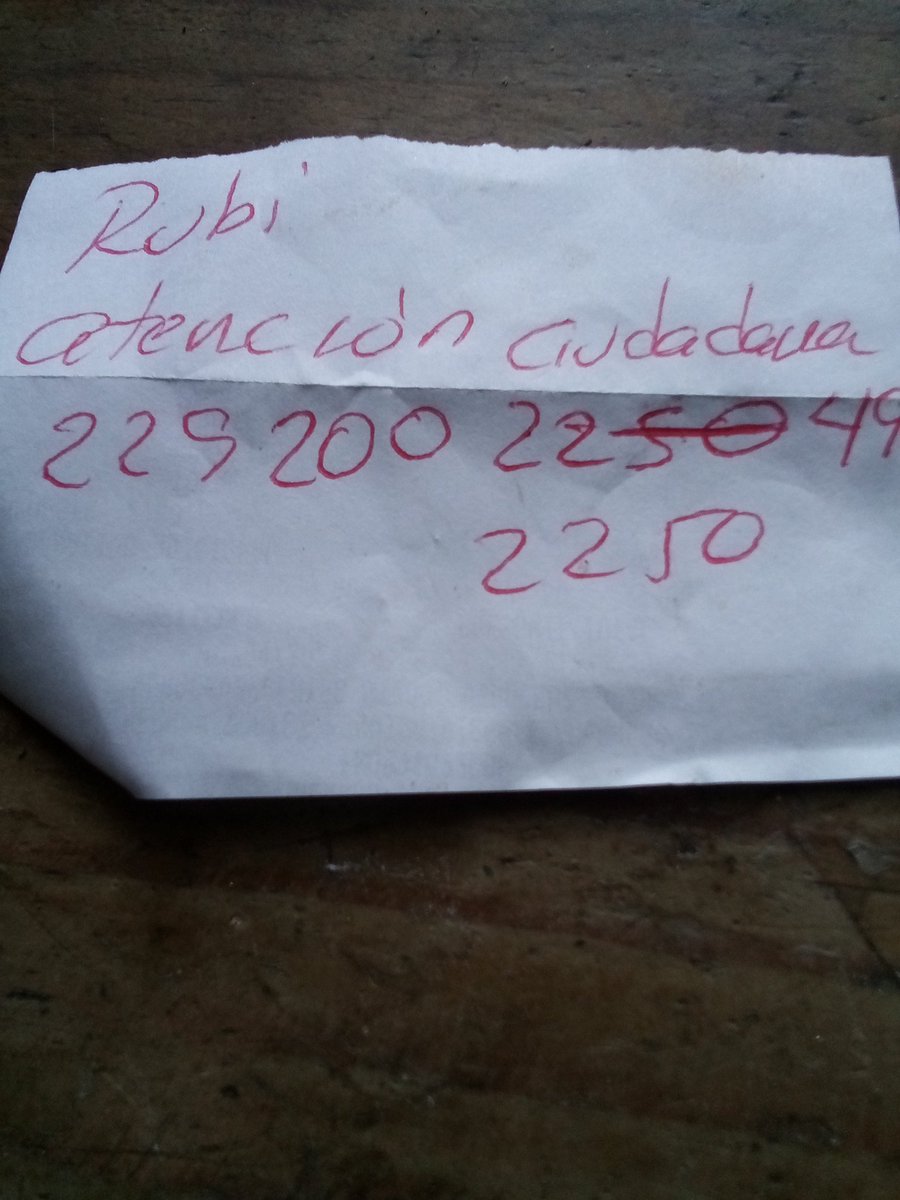 Rubi
atención ciudadana
229 200 2250 49
2250